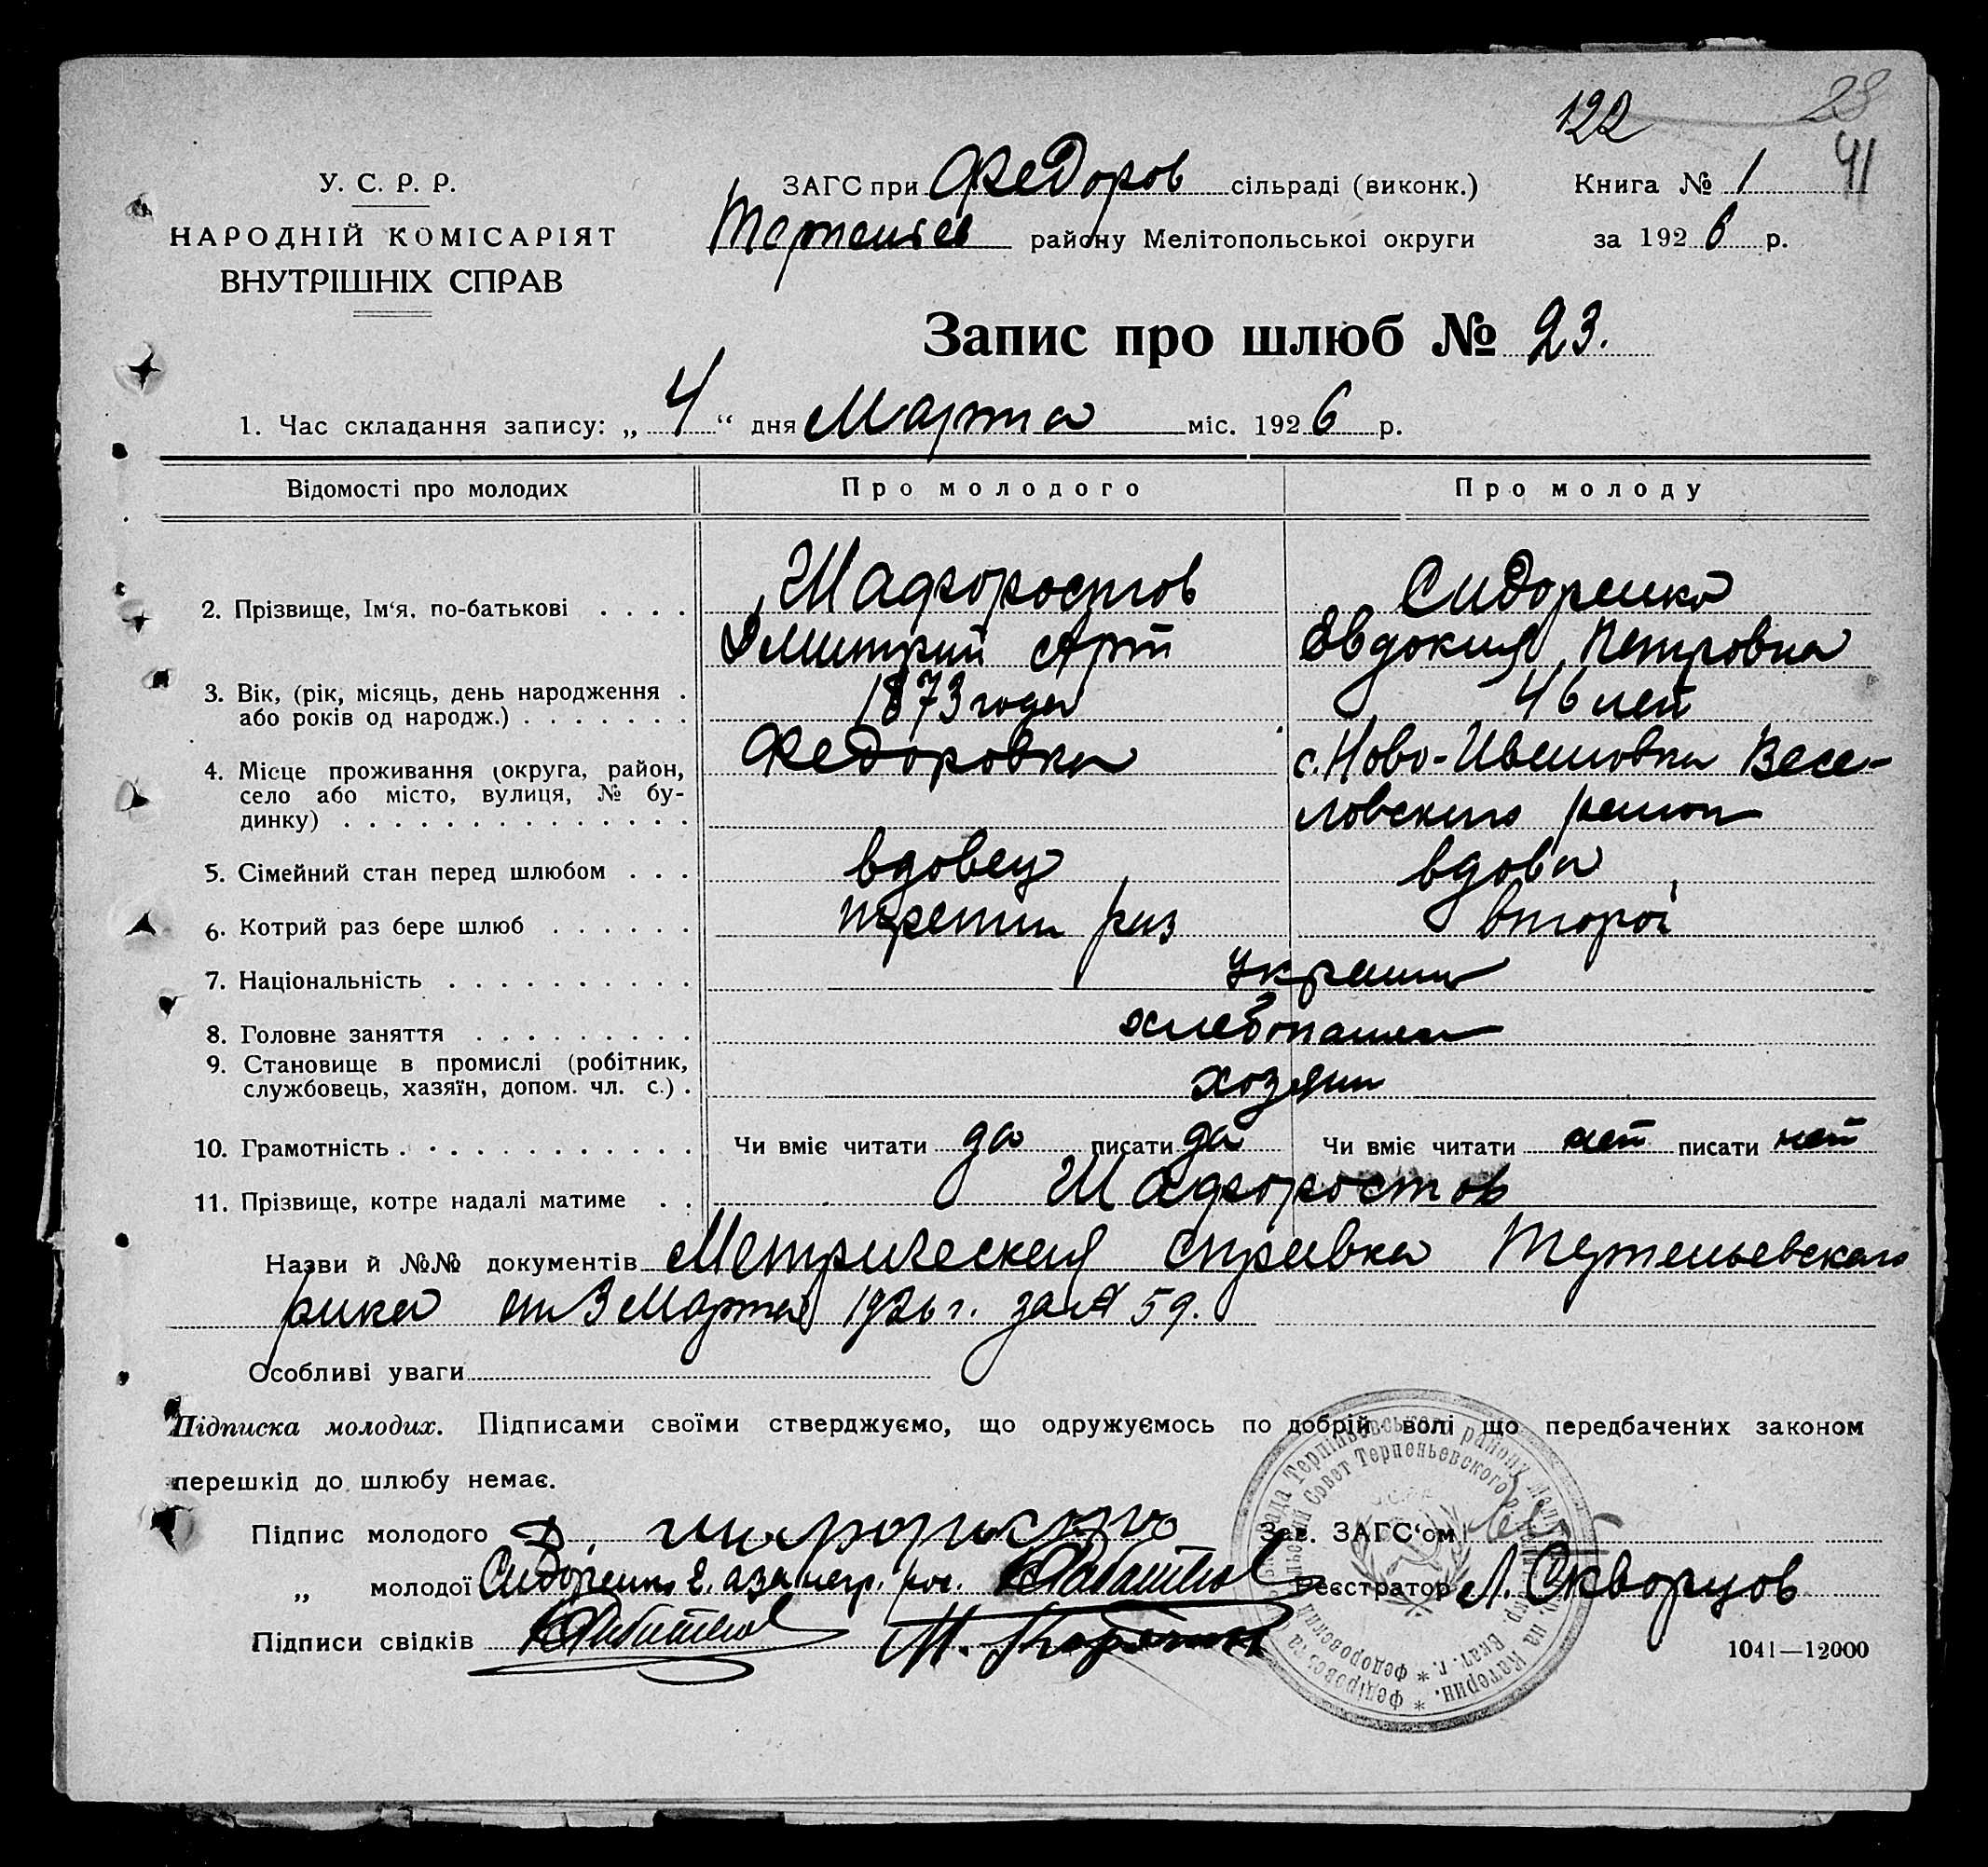 122 28
У. С. Р. Р. ЗАГС при Федоров сільраді (виконк.) Книга № 1 41
НАРОДНІЙ КОМІСАРІЯТ Терпеньев району Мелітопольськоі округи за 1926 р.
ВНУТРІШНІХ СПРАВ
Запис про шлюб № 23.
1. Час складання запису: „4“ дня Марта міс. 1926 р.
Відомості про молодих Про молодого Про молоду
2. Прізвище, Ім‘я, по-батькові . . . . Шафоростов Сидоренко
Дмитрий Арт Евдокия Петровна
3. Вік, (рік, місяць, день народження . 1873 года 46 лет
або років од народж.) . . . . . . .
4. Місце проживання (округа, район, Федоровка с. Ново-Ивановка Весе-
село або місто, вулиця, № бу-
динку) . . . . . . . . . . . . . . ловского район
5. Сімейний стан перед шлюбом . . . вдовец вдова
6. Котрий раз бере шлюб . . . . . . третий раз второй
7. Національність . . . . . . . . . . украин
8. Головне заняття . . . . . . . . . хлебопашец
9. Становище в промислі (робітник,
службовець, хазяїн, допом. чл. с.) . хозяин
10. Грамотність . . . . . . . . . . . Чи вміє читати да писати да Чи вміє читати нет писати нет
11. Прізвище, котре надалі матиме . . Шафоростов
Назви й №№ документів Метрическая справка Терпеньевского
рика от 3 Марта 1926 г. за № 59.
Особливі уваги
Підписка молодих. Підписами своїми стверджуємо, що одружуємось по добрій волі що передбачених законом
перешкід до шлюбу немає.
Підпис молодого Д. Зав. ЗАГС‘ом
„ молодої Сидоренко Е. а за негр. рос. Реєстратор Л. Скворцов
Підписи свідків М.
1041—12000